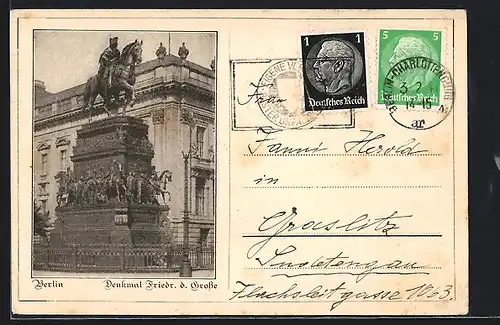 1
Deutsches Reich
5
5
Deutsches Reich
EIGENE
CHARLOTTENBURG
ar
Frau
Fanni Herold
in
Graslitz
Sudetengau
Flachsleitgasse 1063.
Berlin Denkmal Friedr. d. Große